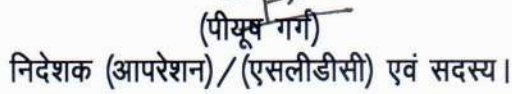 (पीयूष गर्ग)
निदेशक (आपरेशन)/(एसलीडीसी) एवं सदस्य।